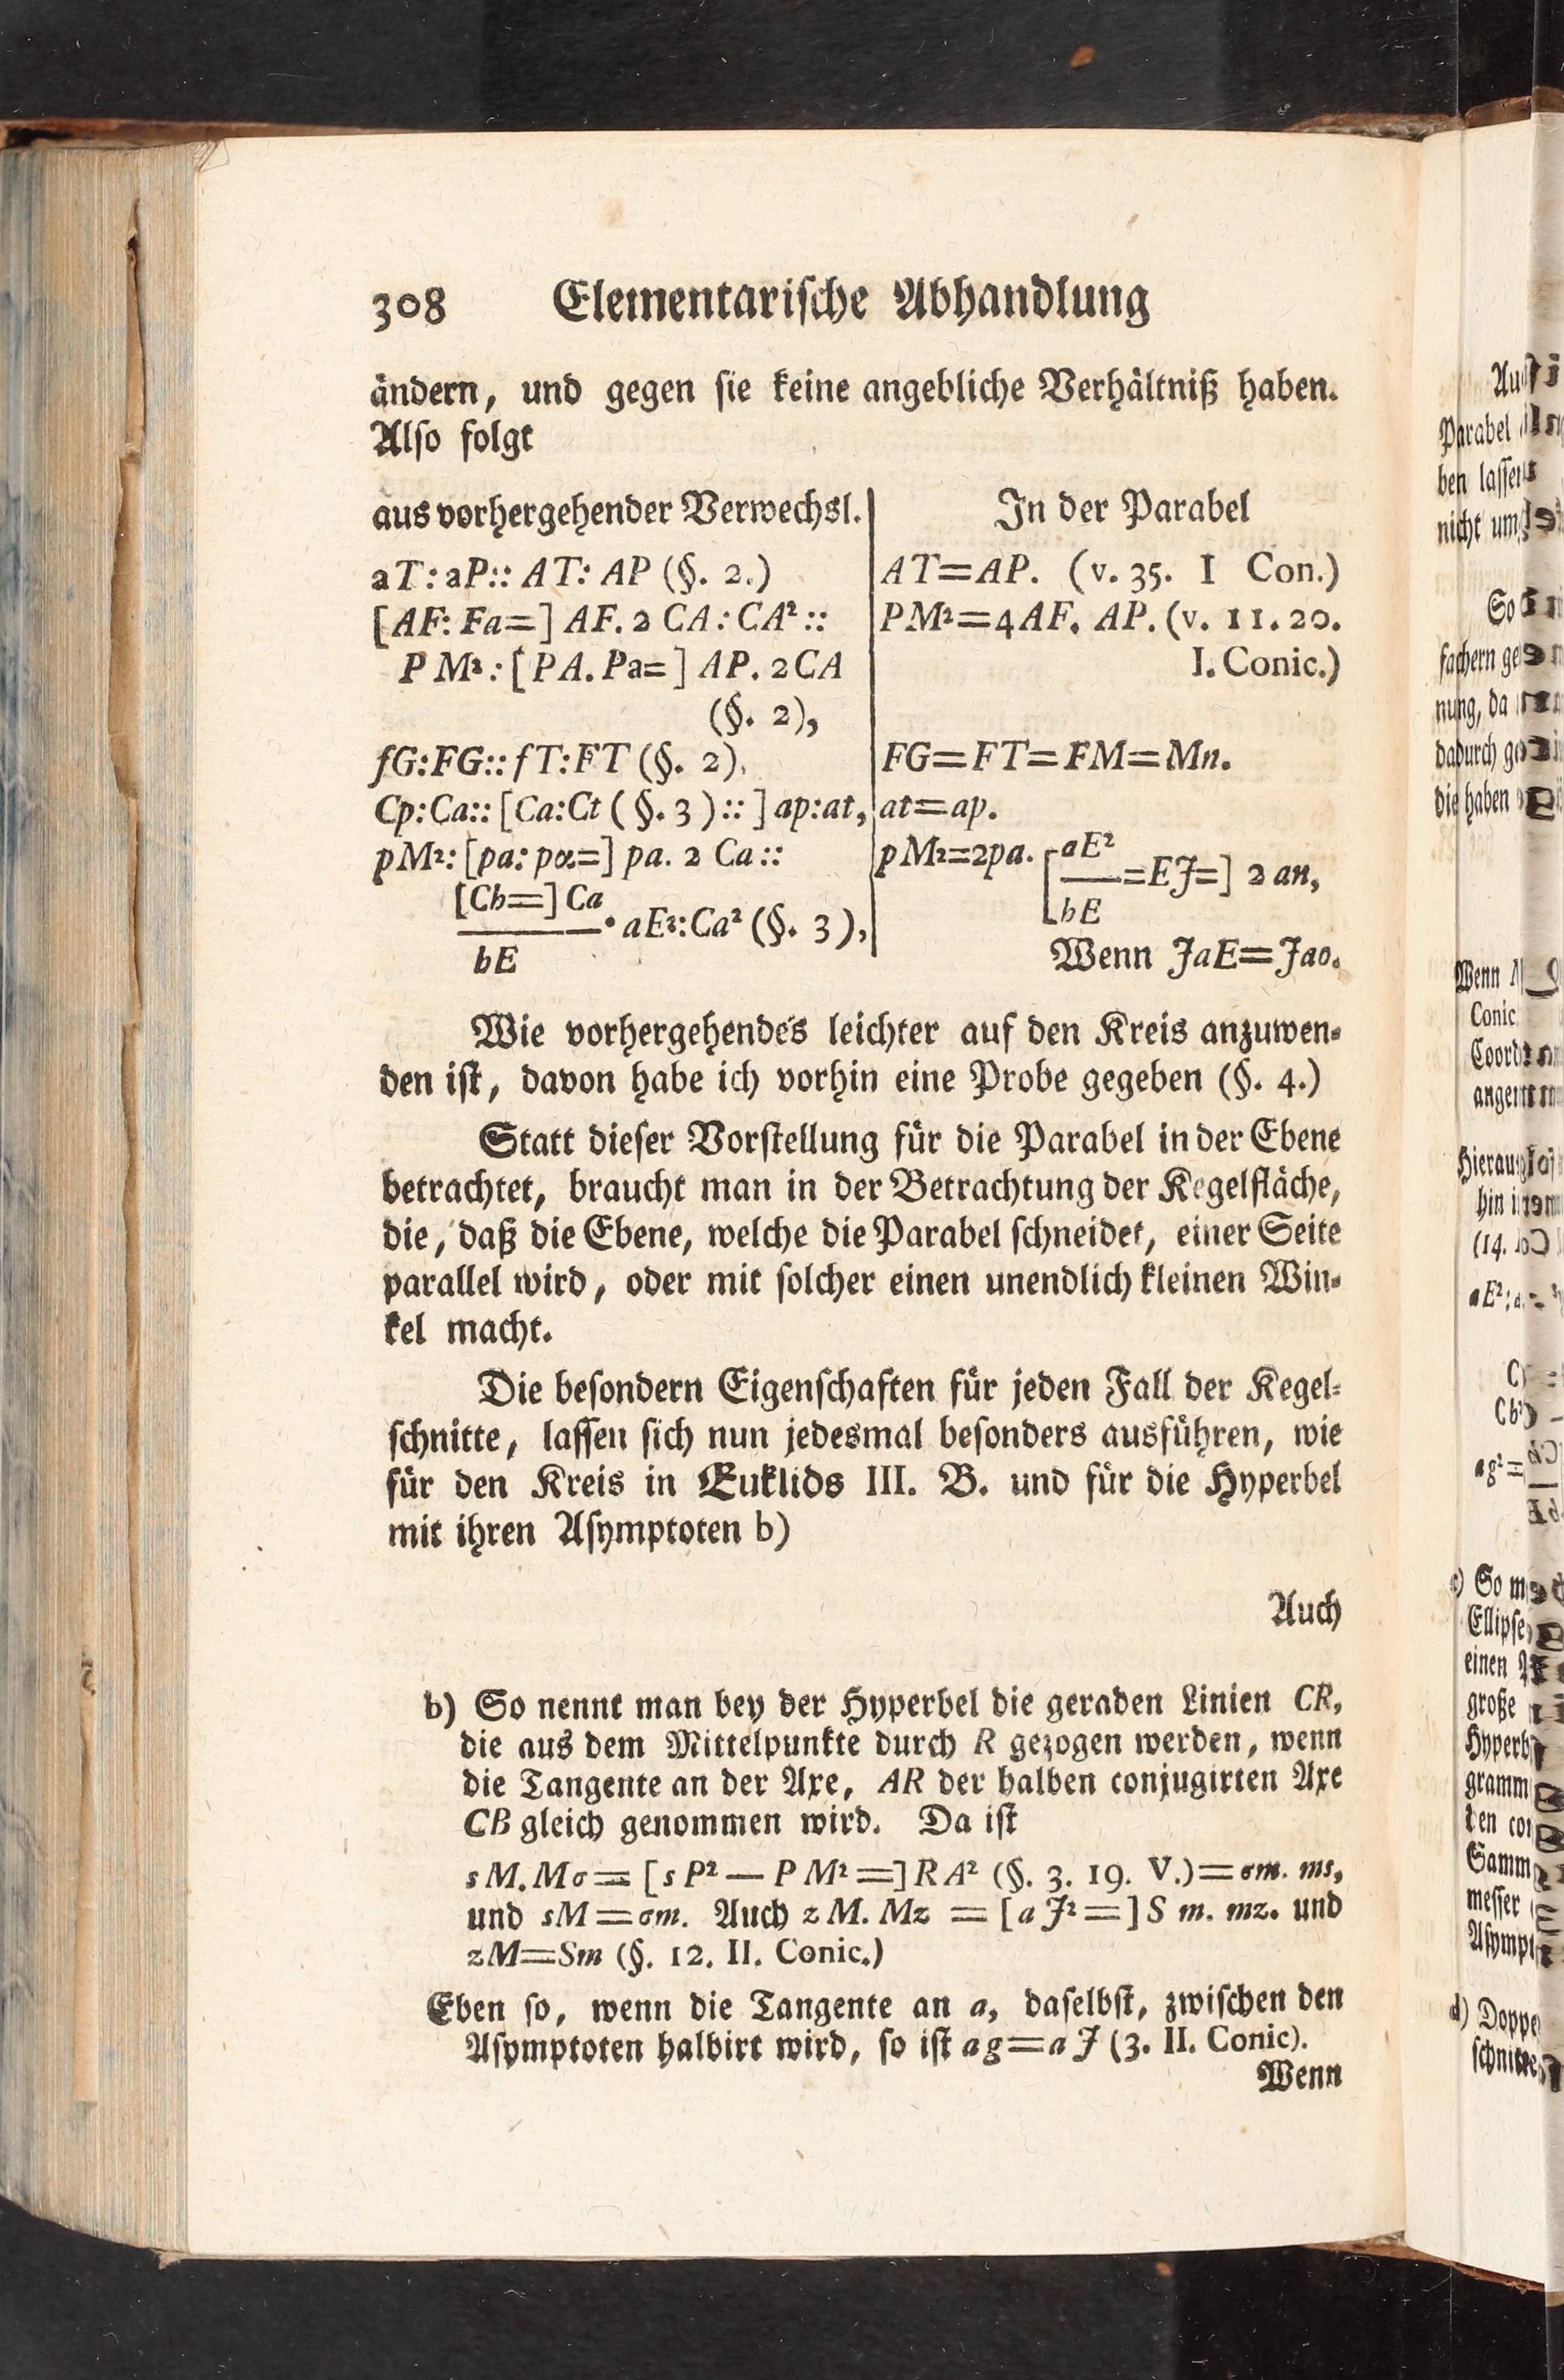 308 Elementarische Abhandlung
ändern, und gegen sie keine angebliche Verhältniß haben.
Also folgt
aus vorhergehender Verwechsl.
aT:aP::AT:AP (§. 2.)
[AF:Fa=] AF. 2 CA:CA²::
PM²:[PA.Pa=] AP. 2CA
(§. 2),
fG:FG::fT:FT (§. 2),
Cp:Ca::[Ca:Ct (§. 3)::] ap:at,
pM²:[pa:pα=] pa. 2 Ca::
[Cb=] Ca
———. aE²:Ca² (§. 3),
bE
In der Parabel
AT=AP. (v. 35. I Con.)
PM²=4AF. AP. (v. 11. 20.
I. Conic.)
FG=FT=FM=Mn.
at=ap.
pM²=2pa. [aE²
——=EJ=] 2 an,
bE
Wenn JaE=Jao.
Wie vorhergehendes leichter auf den Kreis anzuwen-
den ist, davon habe ich vorhin eine Probe gegeben (§. 4.)
Statt dieser Vorstellung für die Parabel in der Ebene
betrachtet, braucht man in der Betrachtung der Kegelfläche,
die, daß die Ebene, welche die Parabel schneidet, einer Seite
parallel wird, oder mit solcher einen unendlich kleinen Win-
kel macht.
Die besondern Eigenschaften für jeden Fall der Kegel-
schnitte, lassen sich nun jedesmal besonders ausführen, wie
für den Kreis in Euklids III. B. und für die Hyperbel
mit ihren Asymptoten b)
Auch
b) So nennt man bey der Hyperbel die geraden Linien CR,
die aus dem Mittelpunkte durch R gezogen werden, wenn
die Tangente an der Axe, AR der halben conjugirten Axe
CB gleich genommen wird. Da ist
sM.Mσ=[sP²—PM²=]RA² (§. 3. 19. V.)=σm. ms,
und sM=σm. Auch zM. Mz = [aJ²=]S m. mz. und
zM=Sm (§. 12. II. Conic.)
Eben so, wenn die Tangente an a, daselbst, zwischen den
Asymptoten halbirt wird, so ist ag=aJ (3. II. Conic).
Wenn
Parabel
ben
nicht
So
fachern
nung, da
dadurch
die haben
Wenn
Conic
(14.
So
Ellipse
einen
große
Hyperb
gramm
ten
Samm
messer
Asympt
d) Doppe
schnitte